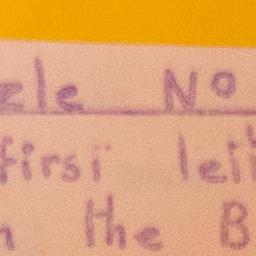 zle Nº
first lett
n the B